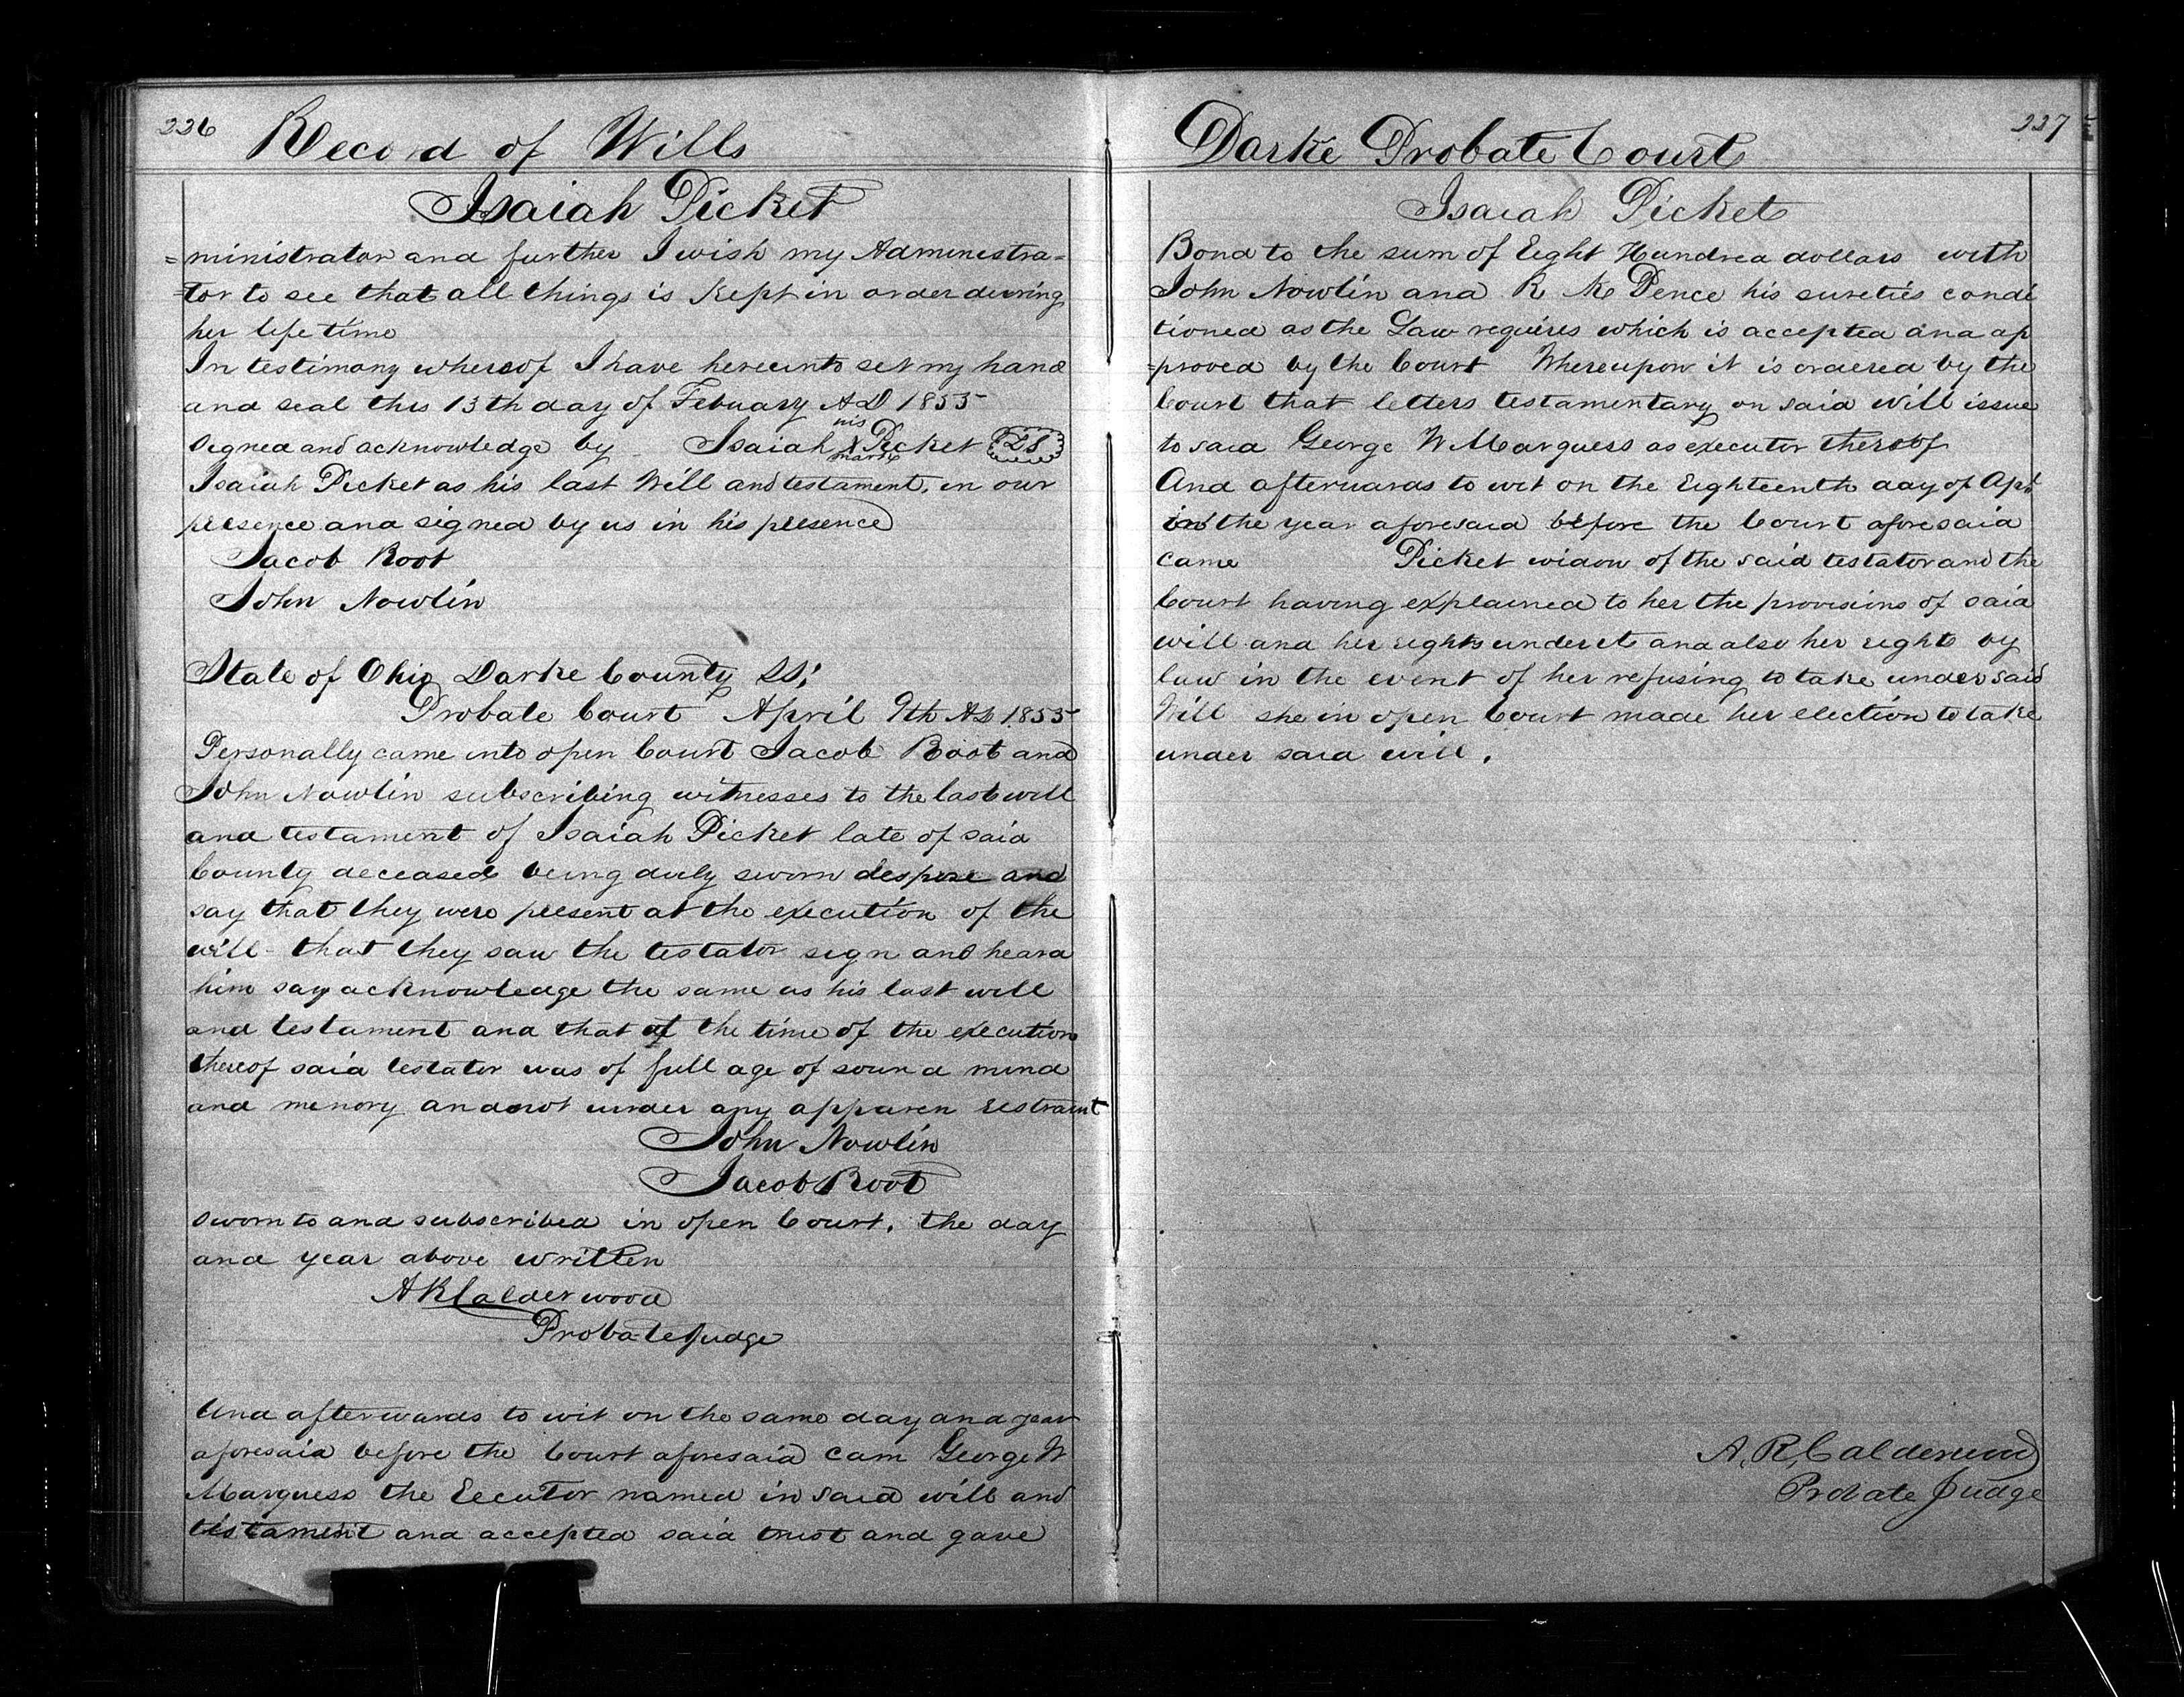 226
Record of Wills
Isaiah Picket
=ministrator and further I wish my Administra=
=tor to see that all things is Kept in order during
her life time
In testimony whereof I have hereunto set my hand
and seal this 13th day of Febuary AD 1855
his
Signed and acknowledge by Isaiah X Picket LS
mark
Isaiah Picket as his last Will and testament, in our
presence and signed by us in his presence
Jacob Root
John Nowlin
State of Ohio Darke County SS;
Probate Court April 9th AD 1855
Personally came into open Court Jacob Root and
John Nowlin subscribing witnesses to the last will
and testament of Isaiah Picket late of said
County deceased being duly sworn despose and
say that they were present at the execution of the
will - that they saw the testator sign and heard
him say acknowledge the same as his last will
and testament and that at the time of the execution
thereof said testator was of full age of sound mind
and menory and not under any apparen restraint
John Nowlin
Jacob Root
Sworn to and subscribed in open Court, the day
and year above written
A R Calderwood
Probate Judge
And afterwards to wit on the same day and year
aforesaid before the Court aforesaid cam George W
Marquess the Eecutor named in said will and
testament and accepted said trust and gave
Darke Probate Court
227
Isaiah Picket
Bond to the sum of Eight Hundred dollars with
John Nowlin and R Mc Pence his sureties condi
tioned as the Law requires which is accepted and ap
=proved by the Court Whereupon it is ordered by the
Court that letters testamentary on said will issue
to said George W Marquess as executor thereof
And afterwards to wit on the Eighteenth day of Apl
in the year aforesaid before the Court aforesaid
came Picket widow of the said testator and the
Court having explained to her the provisions of said
will and her rights under it and also her rights by
law in the event of her refusing to take under said
Will she in open Court made her election to take
under said will.
A. R. Calderwood
Probate Judge